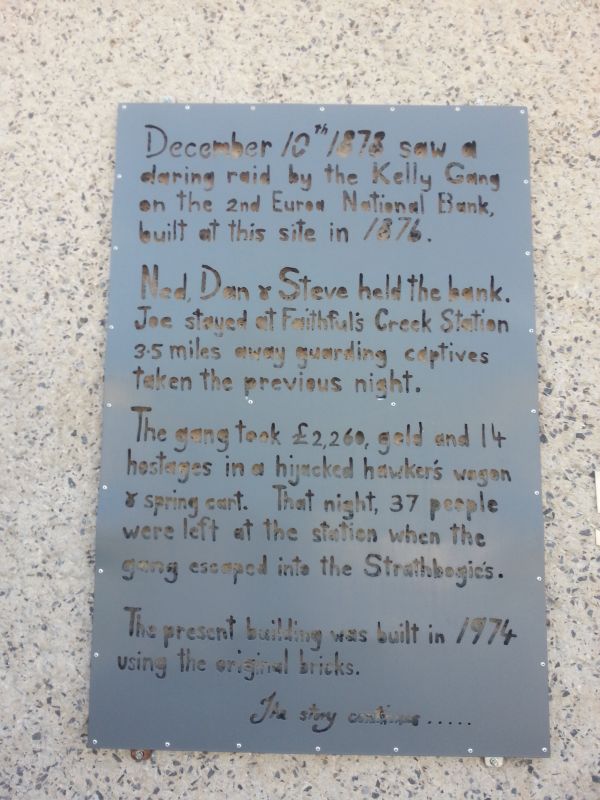 December 10th 1878 saw a
daring raid by the Kelly Gang
on the 2nd Euroa National Bank,
built at this site in 1876.
Ned, Dan & Steve held the bank.
Joe stayed at Faithful's Creek Station
3.5 miles away guarding captives
taken the previous night.
The gang took £2,260, gold and 14
hostages in a hijacked hawker's wagon
& spring cart. That night, 37 people
were left at the station when the
gang escaped into the Strathbogie's.
The present building was built in 1974
using the original bricks.
The story continues .....